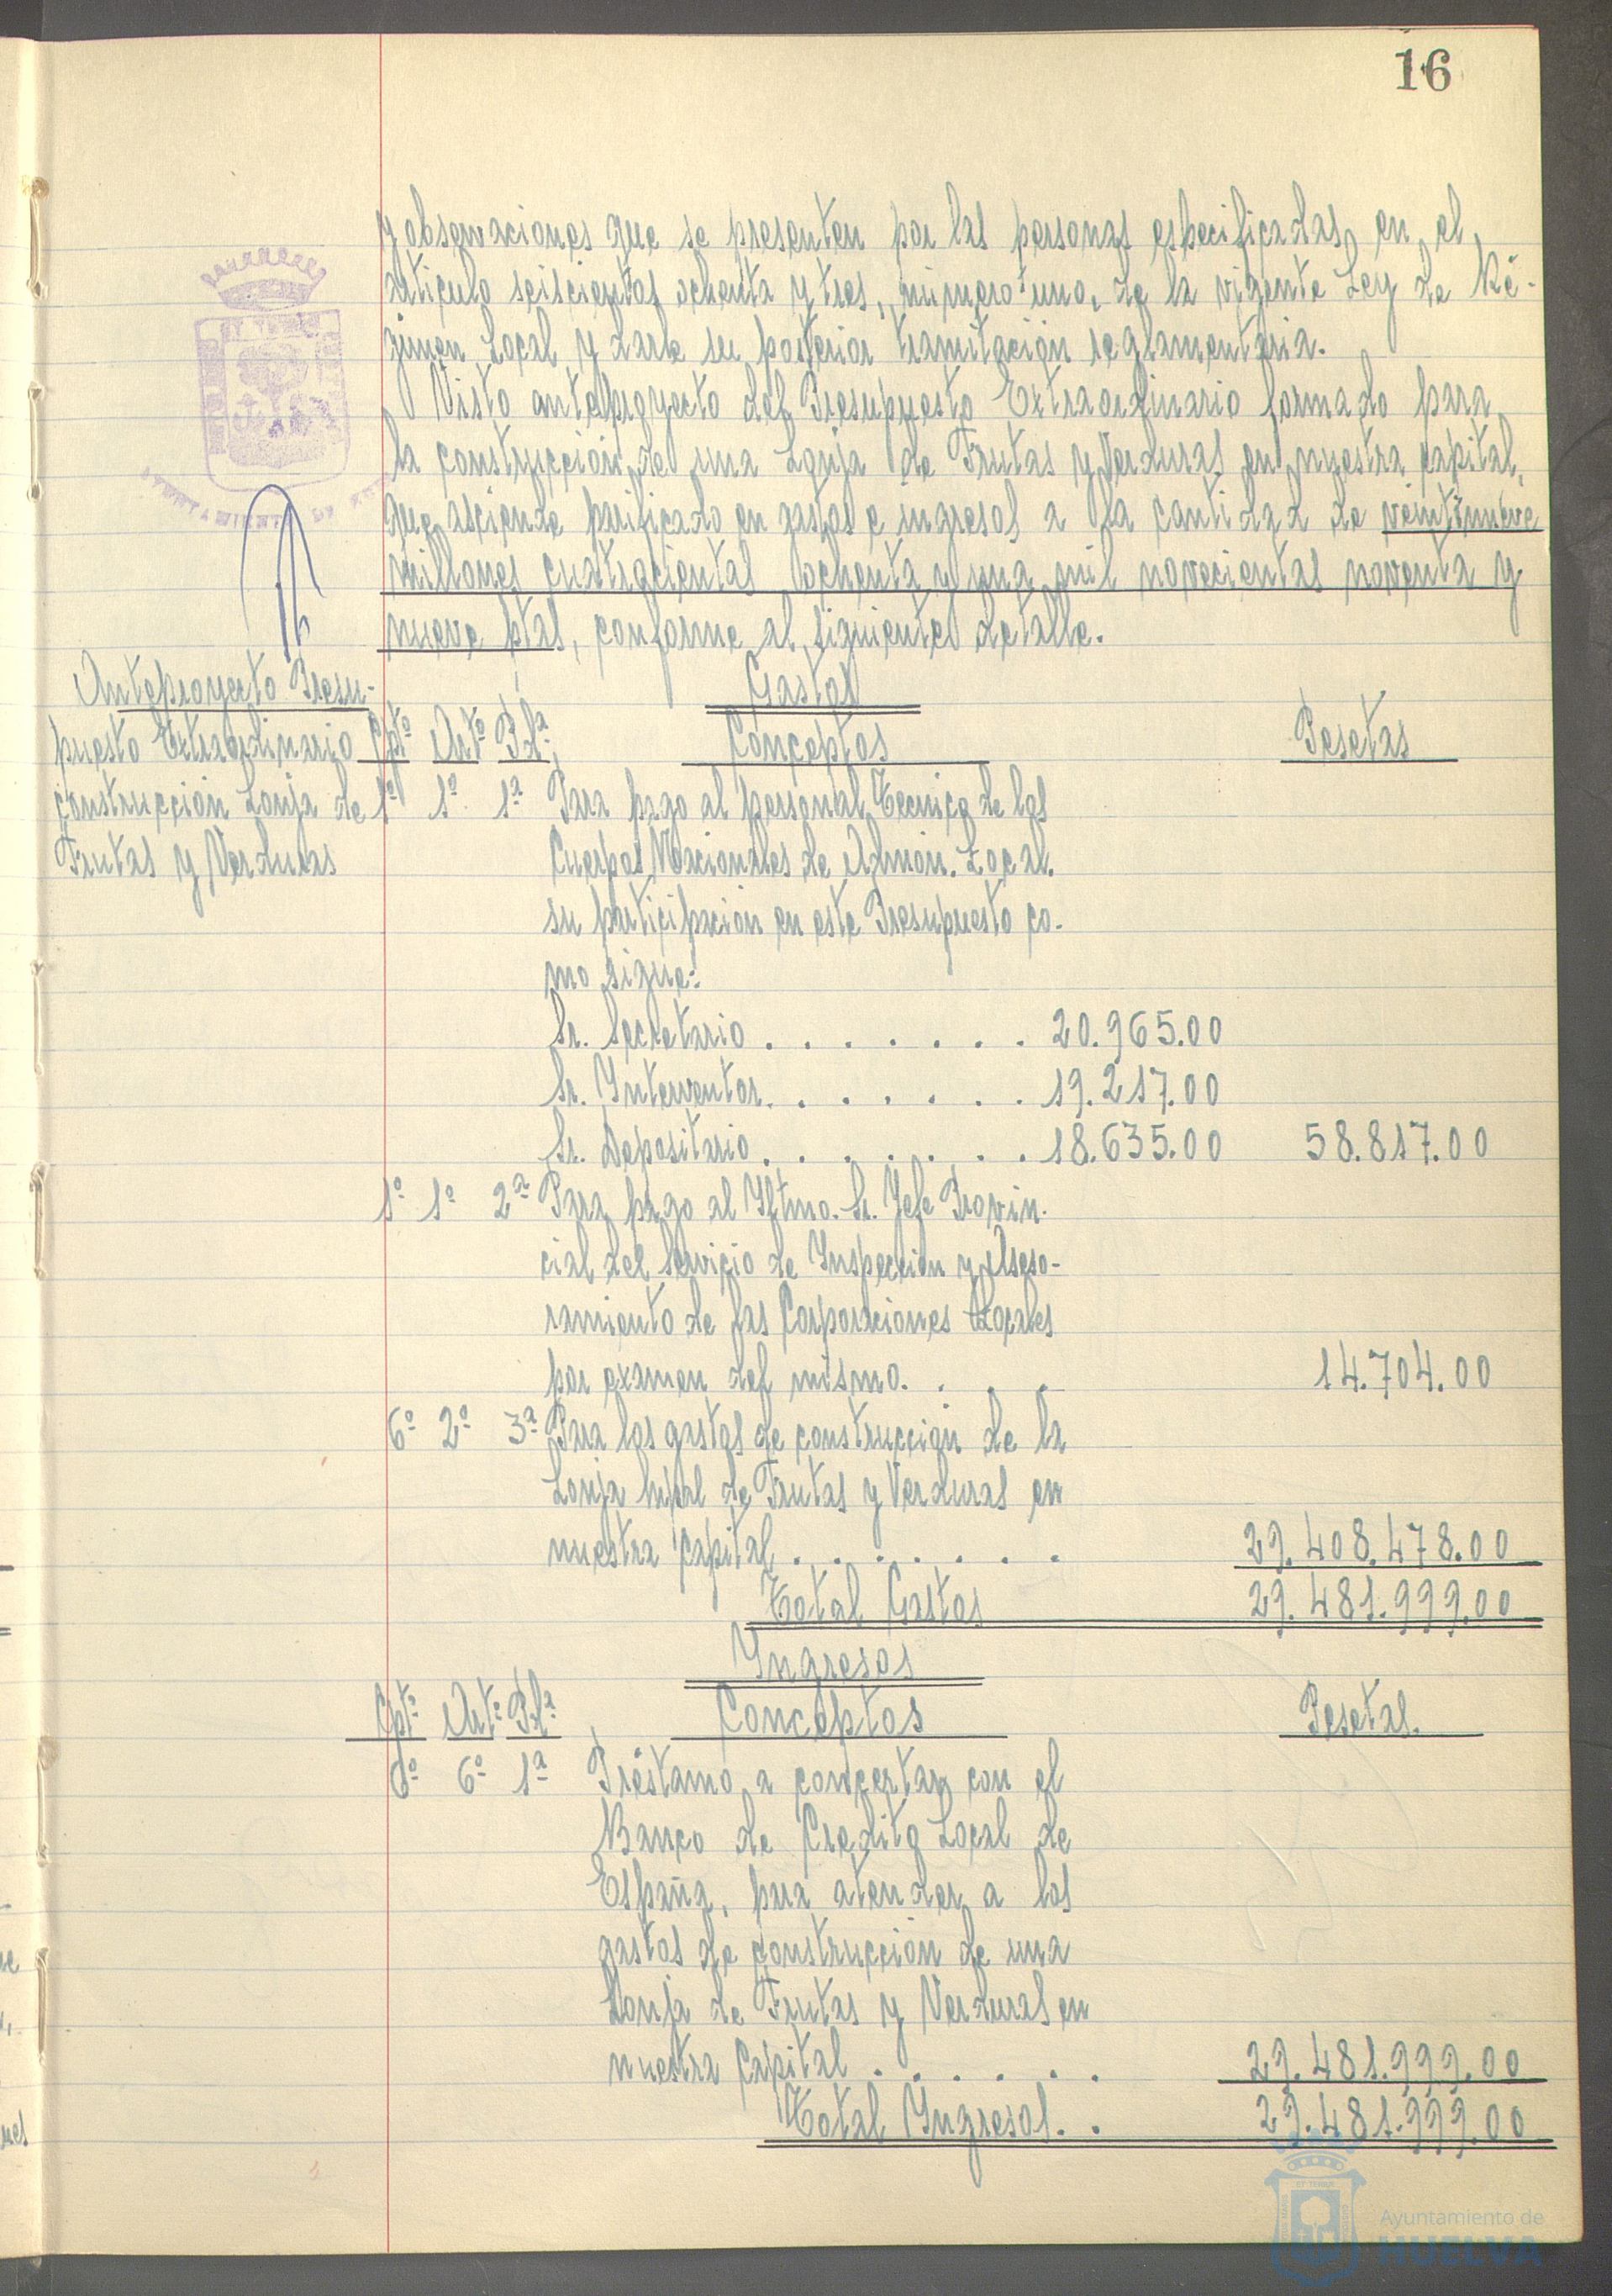 16
y observaciones que se presenten por las personas especificadas en el
articulo seiscientos ochenta y tres, número uno, de la vigente Ley de Ré-
gimen Local y darle su posterior tramitación reglamentaria.
Visto anteproyecto del Presupuesto Extraordinario formado para
la construcción de una Lonja de Frutas y Verduras en nuestra capital,
que asciende nivelado en gastos e ingresos a la cantidad de veintinueve
millones cuatrocientas ochenta y una mil novecientas noventa y
nueve ptas, conforme al siguiente detalle.
Anteproyecto Presu-
puesto Extraordinario
construcción Lonja de
Frutas y Verduras
Gastos
Cptº Artº Pdª Conceptos Pesetas
1º 1º 1ª Para pago al personal Tecnico de los
Cuerpos Nacionales de Admón. Local.
su participación en este Presupuesto co-
mo sigue:
Sr. Secretario . . . . . . . 20.965.00
Sr. Interventor. . . . . . . 19.217.00
Sr. Depositario . . . . . . . 18.635.00 58.817.00
1º 1º 2ª Para pago al Iltmo. Sr. Jefe Provin-
cial del Servicio de Inspección y Aseso-
ramiento de las Corporaciones Locales
por examen del mismo. . . . 14.704.00
6º 2º 3ª Para los gastos de construcción de la
Lonja Mpal de Frutas y Verduras en
nuestra capital . . . . . . . 29.408.478.00
Total Gastos 29.481.999.00
Ingresos
Cptº Artº Pdª Conceptos Pesetas.
6º 6º 1ª Préstamo a concertar con el
Banco de Credito Local de
España, para atender a los
gastos de construcción de una
Lonja de Frutas y Verduras en
nuestra Capital . . . . . . 29.481.999.00
Total Ingresos. . 29.481.999.00
Ayuntamiento de
HUELVA